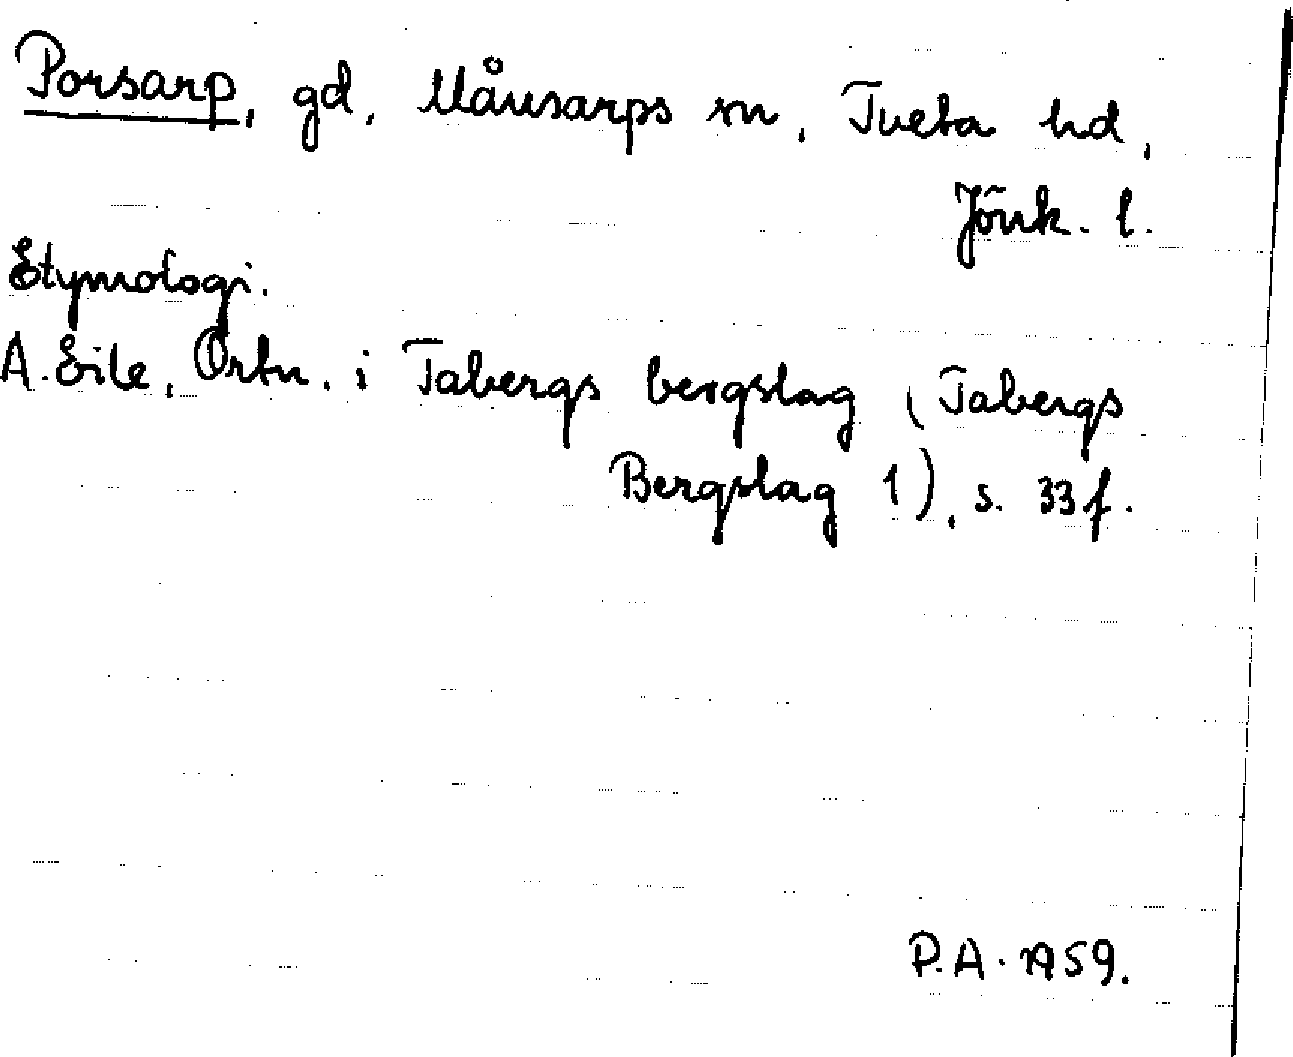 Porsarp, gd, Månsarps sn, Tveta hd,
Jönk. l.
Etymologi.
A. Eile, Ortn. i Tabergs bergslag (Tabergs
Bergslag 1), s. 33 f.
P.A. 1959.